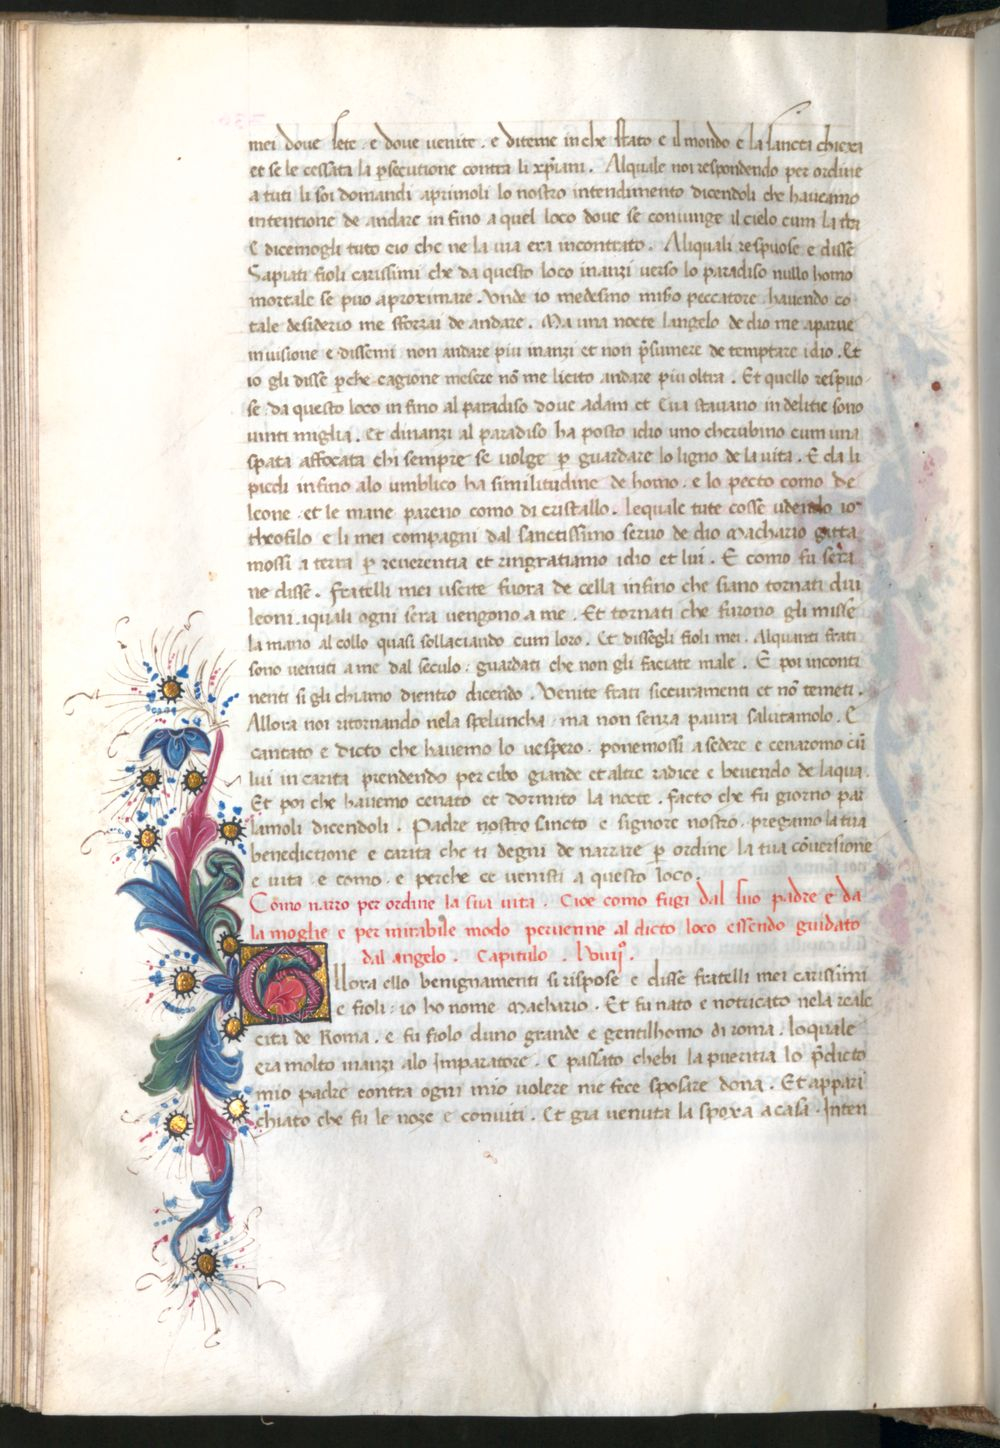 mei dove sete · e dove venite · e diteme in che stato e il mondo e la sancta chiexa
et se le cessata la p̱secutione contra li xp̄iani . Alquale noi respondendo per ordine
a tuti li soi domandi aprimoli lo nostro intendimento dicendoli che haveamo
intentione de andare in fino a quel loco dove se coniunge il cielo cum la t̄ra
E dicemogli tuto cio che ne la via era incontrato . Aliquali respuose e disse
Sapiati fioli carissimi che da questo loco inanzi verso lo paradiso nullo homo
mortale se puo aproximare . Unde io medesimo miso peccatore havendo co
tale desiderio me sforzai de andare . Ma una nocte langelo de dio me aparue
in uisione e dissemi non andare piu inanzi et non p̄sumere de temptare idio . Et
io gli disse p̱che cagione mesere nō me licito andare piu oltra . Et quello respuo
se · da questo loco in fino al paradiso dove adam et Eva stavano in delitie sono
vinti miglia . Et dinanzi al paradiso ha posto idio uno cherubino cum una
spata affocata chi sempre se volge p̱ guardare lo ligno de la vita . E da li
piedi in fino alo umblico ha similitudine de homo · e lo pecto como de
leone · et le mane pareno como di cristallo . lequale tute cosse udendo io
theofilo e li mei compagni dal sanctissimo servo de dio Machario gitta
mossi a terra p̱ reverentia et ringratiamo idio et lui . E como fu sera
ne disse . fratelli mei uscite fuora de cella in fino che siano tornati dui
leoni . iquali ogni sera vengono a me . Et tornati che furono gli misse
la mano al collo quasi sollaciando cum loro . Et dissegli fioli mei . Alquanti frati
sono venuti a me dal seculo · guardati che non gli faciate male . E poi inconti
nenti si gli chiamo dientro dicendo . Venite frati siccuramenti et nō temeti .
Allora noi ritornando nela speluncha · ma non senza paura salutamolo . E
cantato e dicto che havemo lo vespero · ponemossi a sedere e cenaromo cū
lui in carita prendendo per cibo giande et altre radice e bevendo de laqua .
Et poi che havemo cenato et dormito la nocte . facto che fu giorno par
lamoli dicendoli . Padre nostro sancto e signore nostro · pregamo la tua
benedictione e carita che ti degni de narrare p̱ ordine la tua cōversione
e vita · e como · e perche ce venisti a questo loco .
Como narro per ordine la sua vita . Cioe como fugi dal suo padre e da
la moglie e per mirabile modo pervenne al dicto loco essendo guidato
dal angelo . Capitulo . lviiij° .
Allora ello benignamenti si rispose e disse fratelli mei carissimi
e fioli · io ho nome Machario . Et fu nato e notricato nela reale
cita de Roma . e fu fiolo duno grande e gentilhomo di roma . loquale
era molto inanzi alo Imparatore . E passato chebi la pueritia lo p̄dicto
mio padre contra ogni mio volere me fece sposare dona . Et appari
chiato che fu le noze e conviti . Et gia venuta la spoxa a casa . Inten